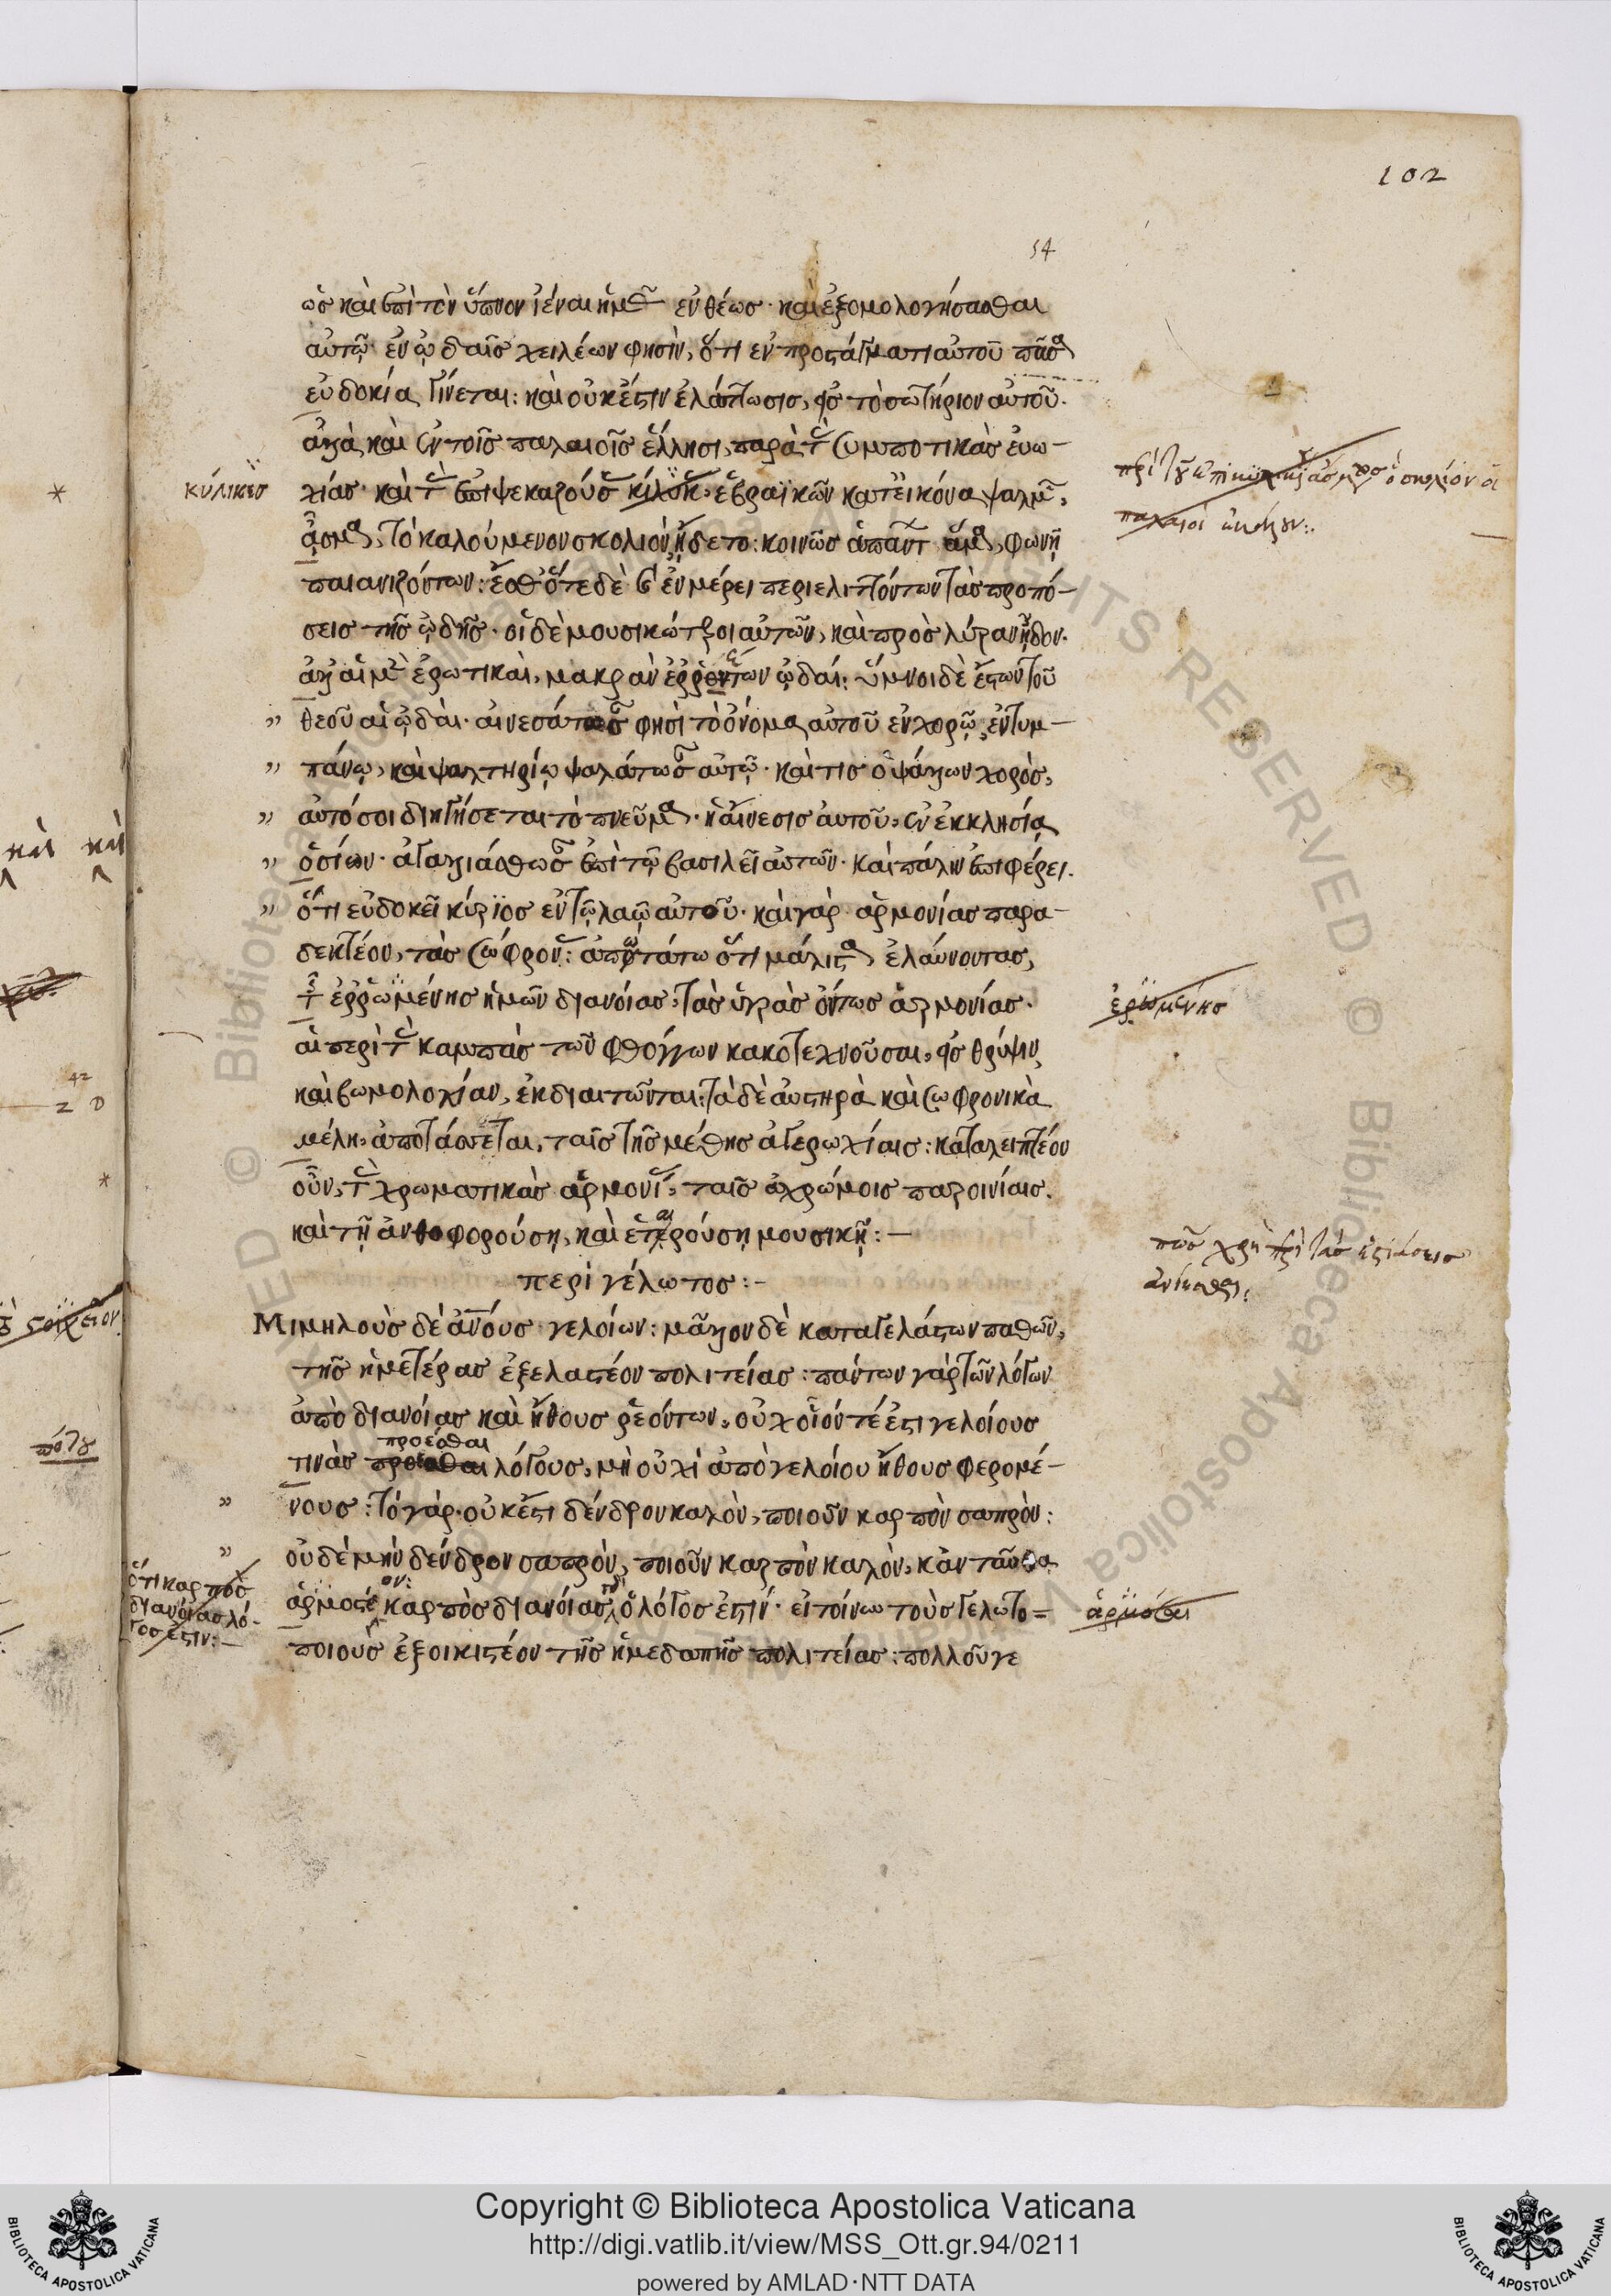 102
54
ὡς καὶ ἐπὶ τὸν ὕπνον ἰέναι ἡμᾶς ἐνθέως· καὶ ἐξομολογήσασθαι
αὐτῷ ἐν ᾠδαῖς χειλέων φησὶν, ὅτι ἐν προστάγματι αὐτοῦ πᾶσα
εὐδοκία γίνεται: καὶ οὐκ ἔστιν ἐλάττωσις, εἰς τὸ σωτήριον αὐτοῦ.
ἀλλὰ καὶ ἐν τοῖς παλαιοῖς ἕλλησι, παρὰ τὰς συμποτικὰς εὐω-
κύλικες
χίας· καὶ τὰς ἐπιψεκαζούσας κίλικας, ἑβραϊκῶν κατ' εἰκόνα ψαλμῶν,
ᾆσμα, τὸ καλούμενον σκολιὸν ᾔδετο: κοινῶς ἁπάντων ἅμα, φωνῇ
παιανιζόντων: ἔσθ' ὅτε δὲ καὶ ἐν μέρει περιελιττόντων τὰς προπό-
σεις τῆς ᾠδῆς· οἱ δὲ μουσικώτεροι αὐτῶν, καὶ πρὸς λύραν ᾖδον.
ἀλλ' αἱ μὲν ἐρωτικαὶ, μακρὰν ἐρρόντων ᾠδαί: ὕμνοι δὲ ἔστων τοῦ
θεοῦ αἱ ᾠδαὶ· αἰνεσάτωσαν φησὶ τὸ ὄνομα αὐτοῦ ἐν χορῷ, ἐν τυμ-
πάνῳ, καὶ ψαλτηρίῳ ψαλάτωσαν αὐτῷ· καὶ τίς ὁ ψάλλων χορὸς,
αὐτό σοι διηγήσεται τὸ πνεῦμα· ἡ αἴνεσις αὐτοῦ, ἐν ἐκκλησίᾳ
ὁσίων· ἀγαλλιάσθωσαν ἐπὶ τῷ βασιλεῖ αὐτῶν· καὶ πάλιν ἐπιφέρει.
ὅτι εὐδοκεῖ κύριος ἐν τῷ λαῷ αὐτοῦ· καὶ γὰρ ἁρμονίας παρα-
δεκτέον, τὰς σώφρονας: ἀπωτάτω ὅτι μάλιστα, ἐλαύνοντας,
τῆς ἐρρωμένης ἡμῶν διανοίας, τὰς ὑγρὰς ὄντως ἁρμονίας.
ἐρρωμένης
αἱ περὶ τὰς καμπὰς τῶν φθόγγων κακοτεχνοῦσαι, εἰς θρύψιν
καὶ βωμολοχίαν, ἐκδιαιτῶνται: τὰ δὲ αὐστηρὰ καὶ σωφρονικὰ
μέλη, ἀποτάσσεται, ταῖς τῆς μέθης ἀγερωχίαις: καταλειπτέον
οὖν, τὰς χρωματικὰς ἁρμονίας, ταῖς ἀχρώμοις παροινίαις.
καὶ τῇ ἀνθοφορούσῃ, καὶ ἑταιρούσῃ μουσικῇ: —
πῶς χρὴ περὶ τὰς ἑστιάσεις
ἀνίεσθαι:
περὶ γέλωτος: -
Μιμηλοὺς δὲ ἀνους γελοίων: μᾶλλον δὲ καταγελάστων παθῶν,
τῆς ἡμετέρας ἐξελαστέον πολιτείας: πάντων γὰρ τῶν λόγων
ἀπὸ διανοίας καὶ ἤθους ῥεόντων, οὐχ οἷόν τέ ἐστι γελοίους
προέσθαι
τινὰς λόγους, μὴ οὐχὶ ἀπὸ γελοίου ἤθους φερομέ-
νους: τὸ γάρ· οὐκ ἔστι δένδρον καλὸν, ποιοῦν καρπὸν σαπρὸν:
οὐδὲ μὴν δένδρον σαπρὸν, ποιοῦν καρπὸν καλὸν, κἀνταῦθα
ὅτι καρπὸς
διανοίας λό-
γος ἐστιν: —
ἁρμοστέον: καρπὸς διανοίας, ὁ λόγος ἐστίν· εἰ τοίνυν τοὺς γελωτο=
ποιοὺς ἐξοικιστέον τῆς ἡμεδαπῆς πολιτείας: πολλοῦ γε
Copyright © Biblioteca Apostolica Vaticana
http://digi.vatlib.it/view/MSS_Ott.gr.94/0211
powered by AMLAD·NTT DATA